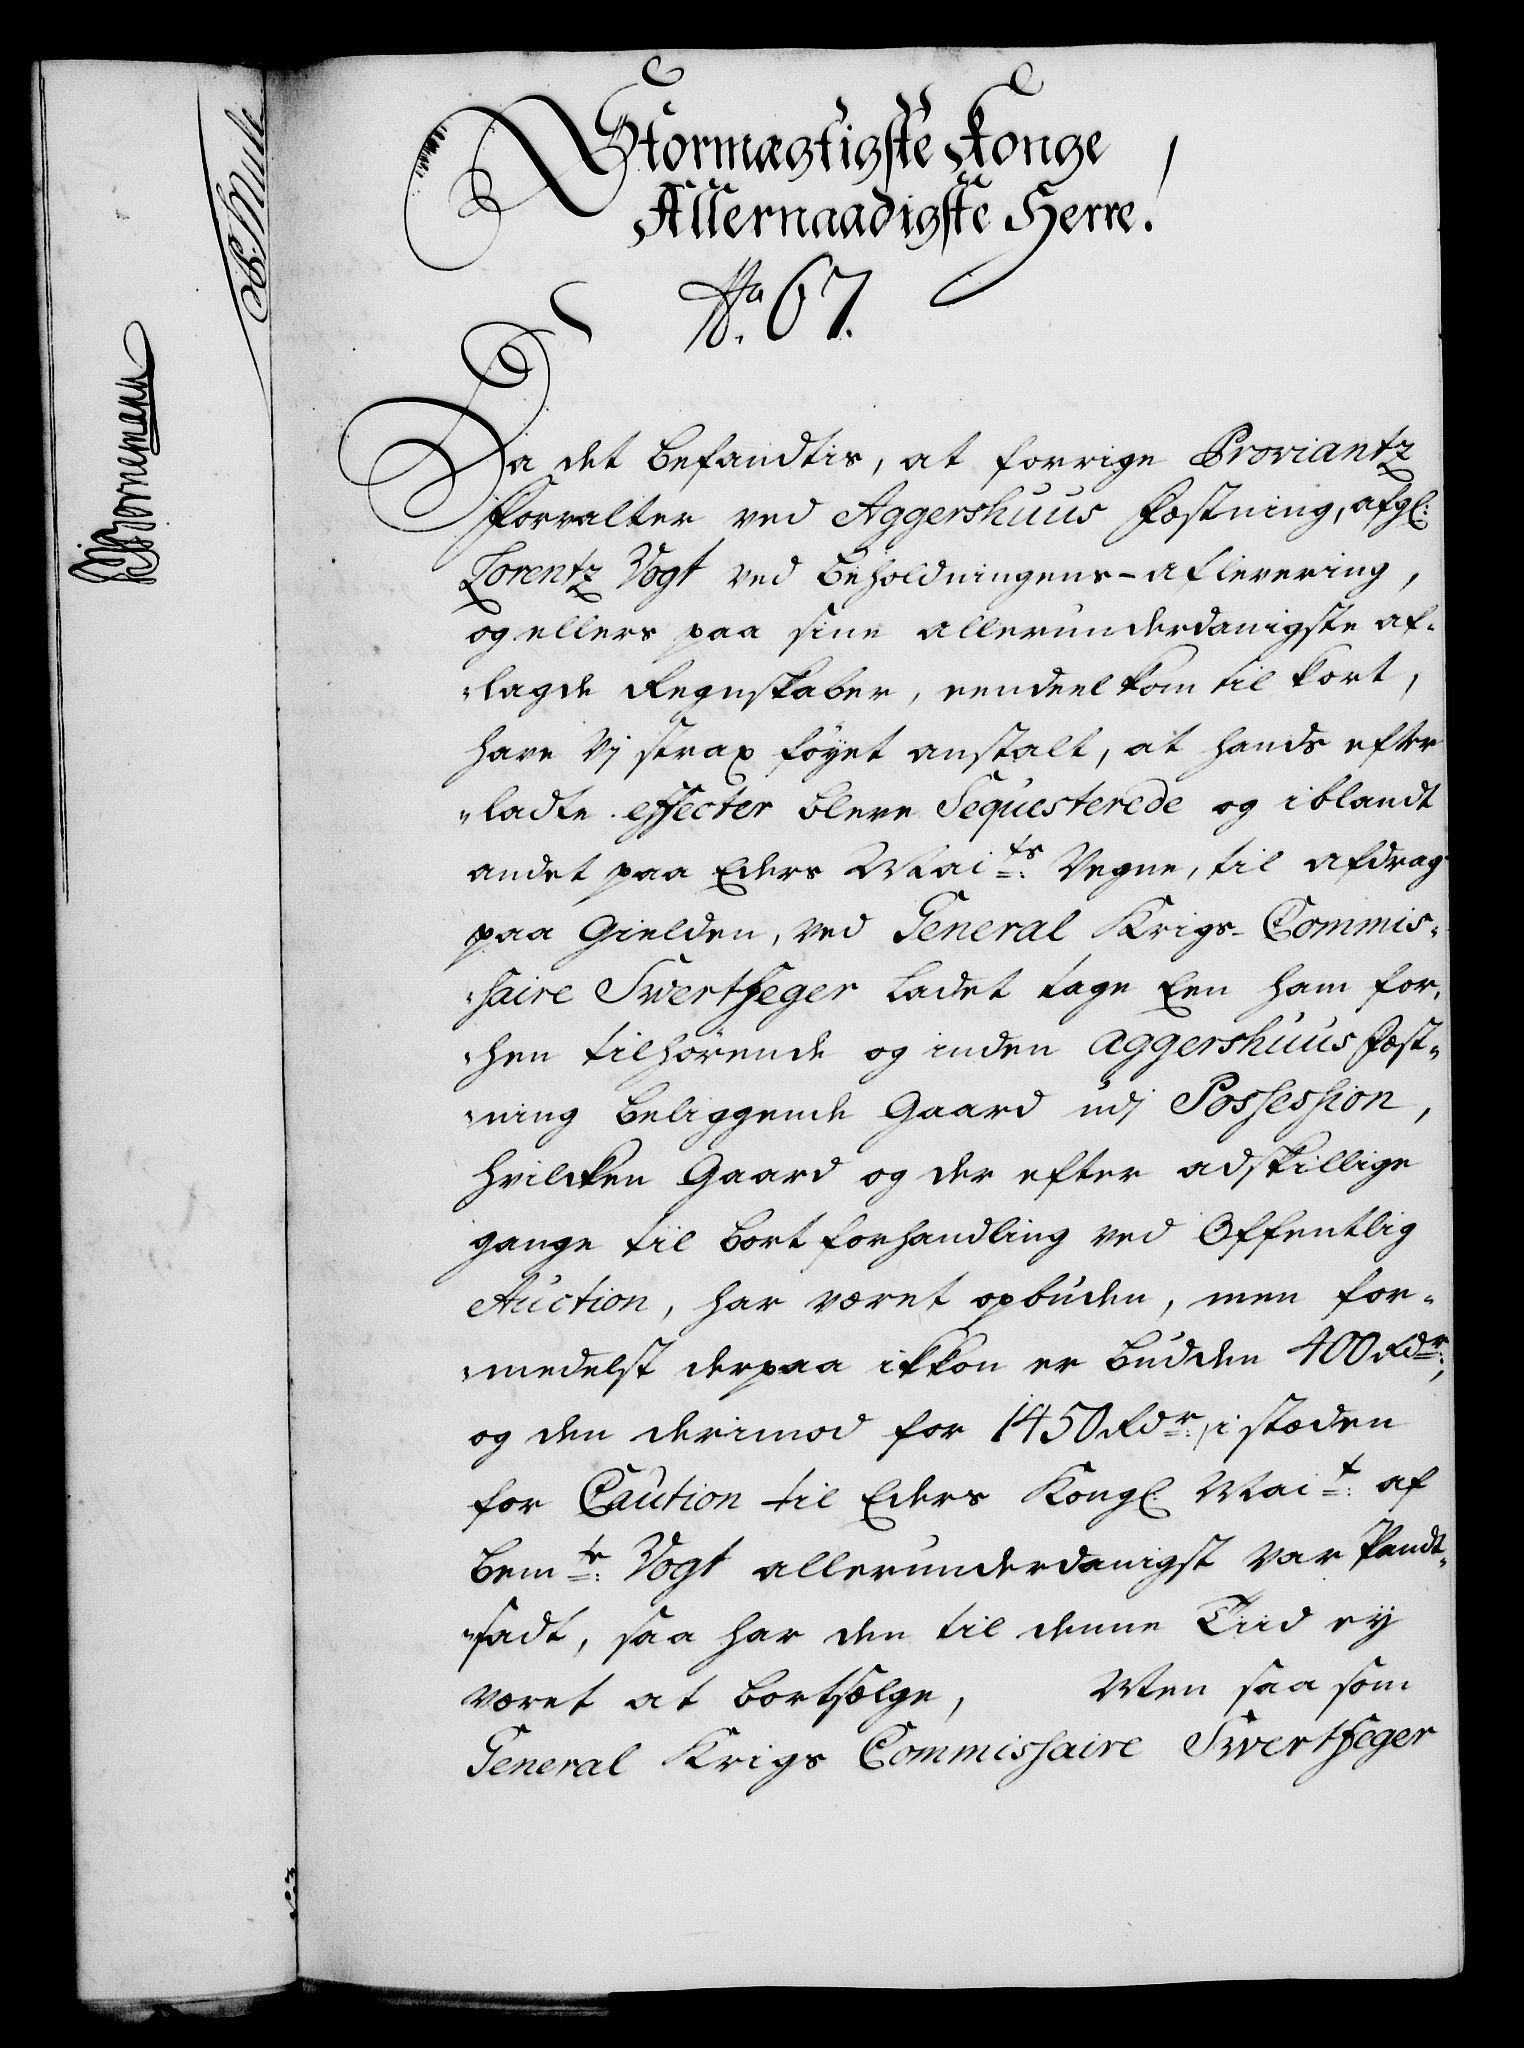 Stormægtigste Konge
Allernaadigste Herre!
No. 67.
Da det befandtis, at forrige Proviantz
Forvalter ved Aggershuus Fæstning, afgl:
Lorentz Vogt ved Beholdningens-aflevering,
og ellers paa sine allerunderdanigste af-
lagde Regnskaber, eendeel kom til kort,
have Vj strax føyet anstalt, at hands efter
ladte effecter bleve Sequesterede og iblandt
andet paa Eders Maits: Vegne, til afdrag
paa Gielden, ved General Krigs-Commis-
saire Svertfeger ladet tage Een ham for-
hen tilhørende og inden Aggershuus Fæst-
ning beliggende Gaard udj Possession,
hvilcken Gaard og der efter adskillige
gange til bortforhandling ved Offentlig
Auction, har været opbuden, men for-
medelst derpaa ikkon er budden 400 Rdr:,
og den derimod for 1450 Rdr: i stæden
for Caution til Eders Kongl: Mait: af
bemte: Vogt allerunderdanigst var Pandt-
sadt, saa har den til denne Tiid ey
været at bortsælge, Men saa som
General Krigs Commissaire Svertfeger
Bornemann